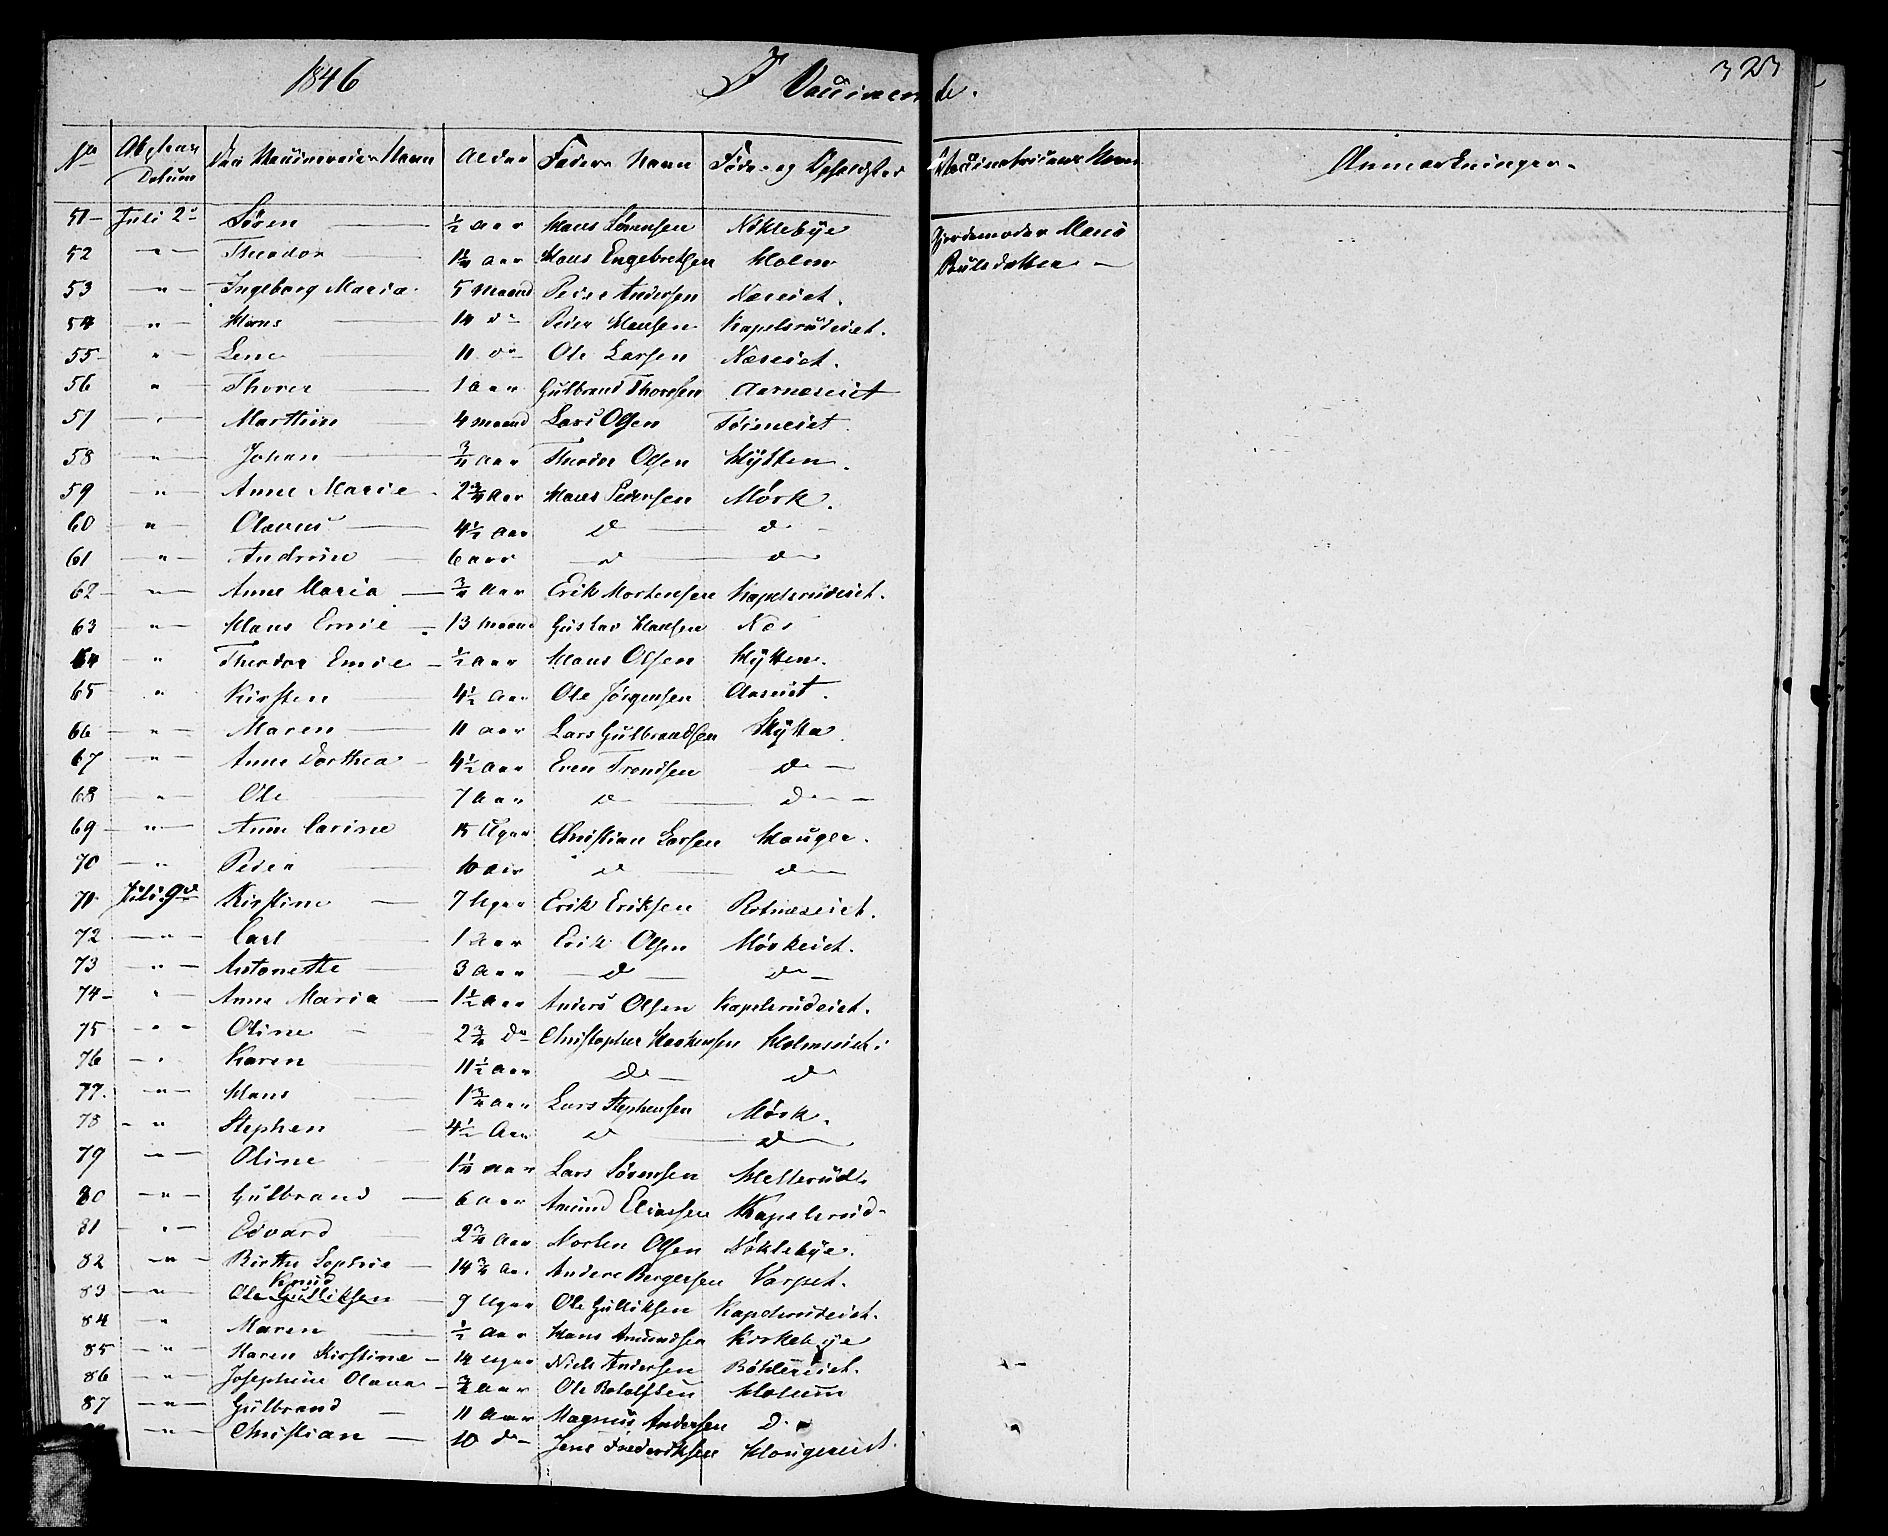 1846 Vaccinerede. 323
No Attestens Datum Den Vaccineredes Navn Alder Faders Navn Føde- og Opholdssted Vaccinatricens Navn Anmærkninger.
51 Juli 2d Søren ½ aar Hans Sørensen Nöklebye Gjordemoder Maria
52 " Theodor 1¼ aar Hans Engebretsen Holm Pauls datter
53 " Ingeborg Maria 5 maand Peder Andersen Næseiet.
54 " Hans 14 do Peder Hansen Kapelsrudeiet.
55 " Lene 11 do Ole Larsen Næseiet.
56 " Thorer 1 aar Gulbrand Thoresen Aarnæseiet
57 " Marthin 4 maand Lars Olsen Töimeiet.
58 " Johan ¾ aar Theodor Olsen Hytten.
59 " Anne Marie 2¾ aar Hans Pedersen Mörk.
60 " Olavus 4½ aar do do
61 " Andrine 6 aar do do
62 " Anne Maria ¾ aar Erik Mortensen Kapelsrudeiet.
63 " Hans Emil 13 maand Gustav Hansen Næs
64 " Theodor Emil ½ aar Hans Olsen Hytten.
65 " Kirsten 4½ aar Ole Jörgensen Aaseiet.
66 " Maren 11 aar Lars Gulbrandsen Hytta
67 " Anne Dorthea 4½ aar Even Trondsen do
68 " Ole 7 aar do do
69 " Anne Carine 15 Uger Christian Larsen Hauger.
70 " Peder 10 aar do do
71 Juli 9d Kirstine 7 Uger Erik Eriksen Rotnæseiet.
72 " Carl 1 aar Erik Olsen Mörkeiet.
73 " Antonette 3 aar do do
74 " Anne Maria 1½ aar Anders Olsen Kapelsrudeiet.
75 " Oline 2¾ do Christopher Haakensen Holmseiet
76 " Karen 11½ aar do do
77 " Hans 1¾ aar Lars Stephensen Mörk.
78 " Stephen 4½ Aar do do
79 " Oline 1¼ aar Lars Sörensen Mellerud.
80 " Gulbrand 6 aar Amund Eliassen Kapelsrud
81 " Edvard 2¾ aar Morten Olsen Nöklebye.
82 " Birthe Sophie 14¾ Aar Anders Bergersen Varpet.
83 " Ole Knud Gulliksen 9 Uger Ole Gulliksen Kapelsrudeiet.
84 " Maren ½ aar Hans Amundsen Kirkebye
85 " Karen Kirstine 14 uger Niels Andersen Böhlereiet.
86 " Josephine Olava ¾ aar Ole Rolofsen Holum
87 " Gulbrand 11 Aar Magnus Andersen D
" Christian 10 do Jens Frederiksen Haugereiet.